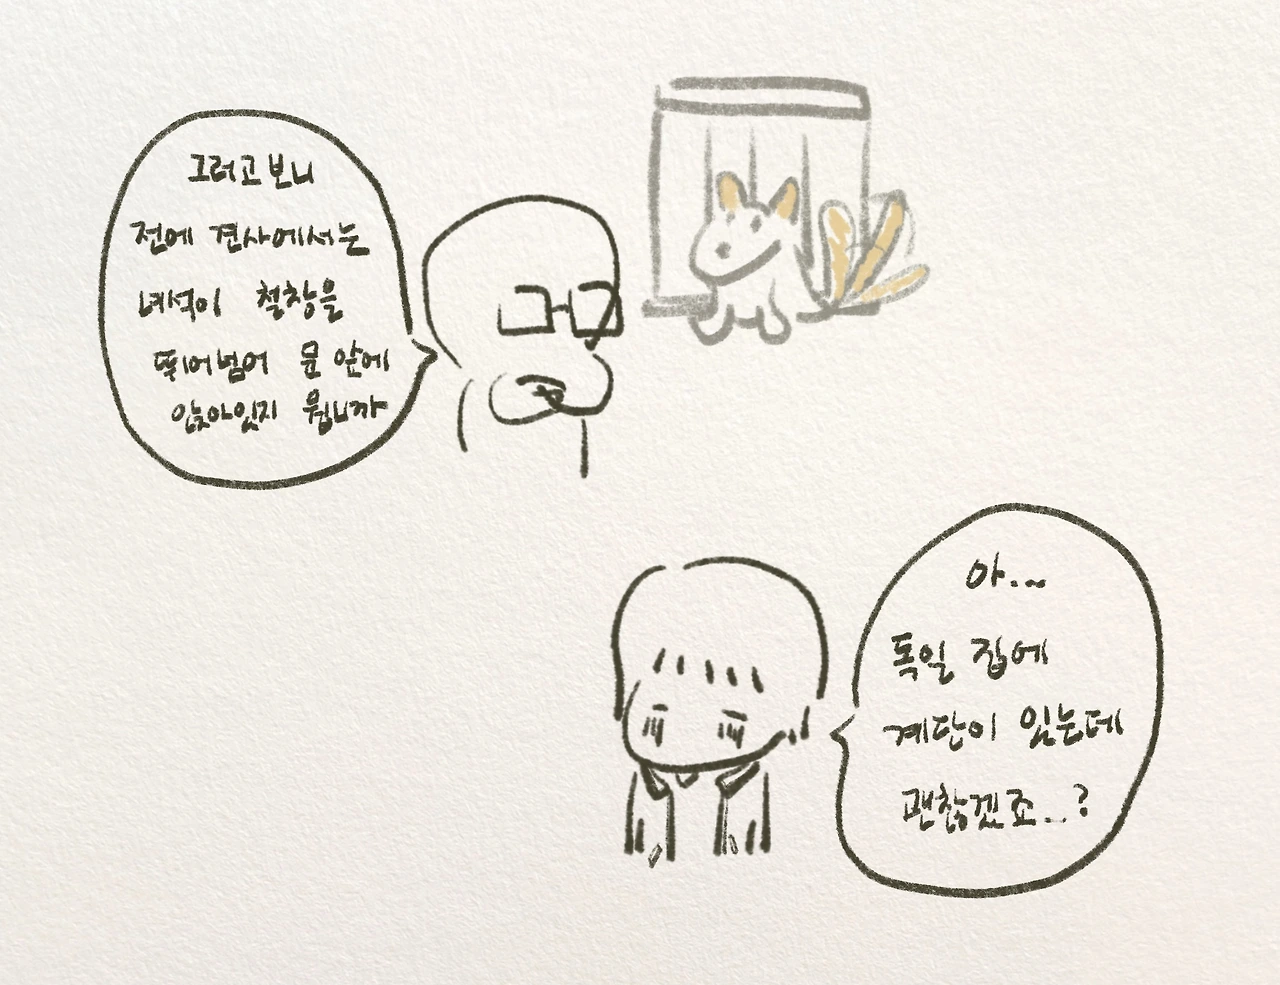 그러고보니
전에 견사에서는
녀석이 철창을
뛰어넘어 문 앞에
앉아있지 뭡니까
아...
독일 집에
계단이 있는데
괜찮겠죠...?